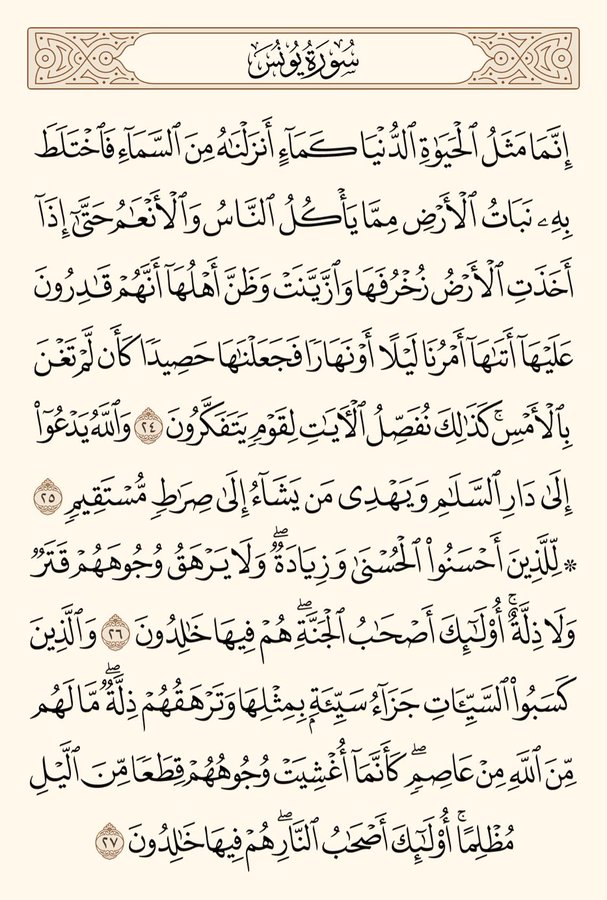 سُورَةُ يُونُسَ
إِنَّمَا مَثَلُ ٱلْحَيَوٰةِ ٱلدُّنْيَا كَمَآءٍ أَنزَلْنَٰهُ مِنَ ٱلسَّمَآءِ فَٱخْتَلَطَ
بِهِۦ نَبَاتُ ٱلْأَرْضِ مِمَّا يَأْكُلُ ٱلنَّاسُ وَٱلْأَنْعَٰمُ حَتَّىٰٓ إِذَآ
أَخَذَتِ ٱلْأَرْضُ زُخْرُفَهَا وَٱزَّيَّنَتْ وَظَنَّ أَهْلُهَآ أَنَّهُمْ قَٰدِرُونَ
عَلَيْهَآ أَتَىٰهَآ أَمْرُنَا لَيْلًا أَوْ نَهَارًا فَجَعَلْنَٰهَا حَصِيدًا كَأَن لَّمْ تَغْنَ
بِٱلْأَمْسِ ۚ كَذَٰلِكَ نُفَصِّلُ ٱلْءَايَٰتِ لِقَوْمٍ يَتَفَكَّرُونَ ٢٤ وَٱللَّهُ يَدْعُوٓا۟
إِلَىٰ دَارِ ٱلسَّلَٰمِ وَيَهْدِى مَن يَشَآءُ إِلَىٰ صِرَٰطٍ مُّسْتَقِيمٍ ٢٥
* لِّلَّذِينَ أَحْسَنُوا۟ ٱلْحُسْنَىٰ وَزِيَادَةٌ ۖ وَلَا يَرْهَقُ وُجُوهَهُمْ قَتَرٌ
وَلَا ذِلَّةٌ ۚ أُو۟لَٰٓئِكَ أَصْحَٰبُ ٱلْجَنَّةِ ۖ هُمْ فِيهَا خَٰلِدُونَ ٢٦ وَٱلَّذِينَ
كَسَبُوا۟ ٱلسَّيِّـَٔاتِ جَزَآءُ سَيِّئَةٍۭ بِمِثْلِهَا وَتَرْهَقُهُمْ ذِلَّةٌ ۖ مَّا لَهُم
مِّنَ ٱللَّهِ مِنْ عَاصِمٍ ۖ كَأَنَّمَآ أُغْشِيَتْ وُجُوهُهُمْ قِطَعًا مِّنَ ٱلَّيْلِ
مُظْلِمًا ۚ أُو۟لَٰٓئِكَ أَصْحَٰبُ ٱلنَّارِ ۖ هُمْ فِيهَا خَٰلِدُونَ ٢٧